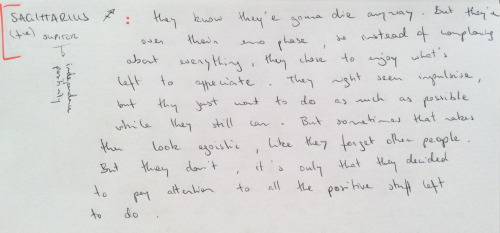 SAGITTARIUS ♐ : they know they're gonna die anyway. But they're
(fire) JUPITER over their emo phase, so instead of complaining
about everything, they chose to enjoy what's
left to appreciate. They might seem impulsive,
but they just want to do as much as possible
while they still can. But sometimes that makes
them look egoistic, like they forget other people.
But they don't, it's only that they decided
to pay attention to all the positive stuff left
to do.
independence
positivity